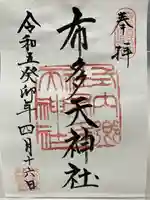 奉拝
布多天神社
令和五癸卯年四月十六日